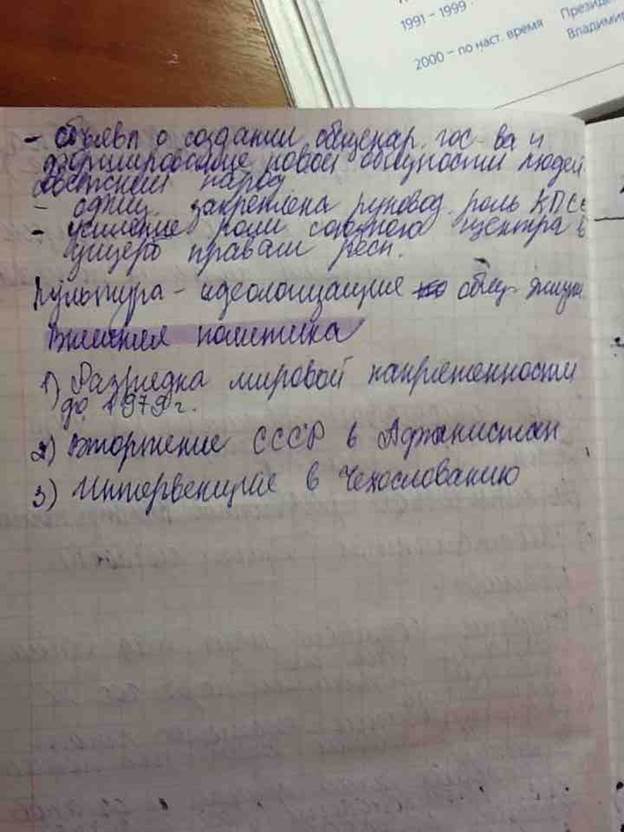 1991 – 1999
Президе
2000 – по наст. время
Владимир
- объявл о создании общенар. гос-ва и
формирование новой общности людей
советский народ
- офиц. закреплена руковод. роль КПСС
- усиление роли союзного центра в
ущерб правам респ.
Культура - идеологизация общ. жизни
Внешняя политика
1) Разрядка мировой напряженности
до 1979г.
2) Вторжение СССР в Афганистан
3) Интервенция в Чехословакию